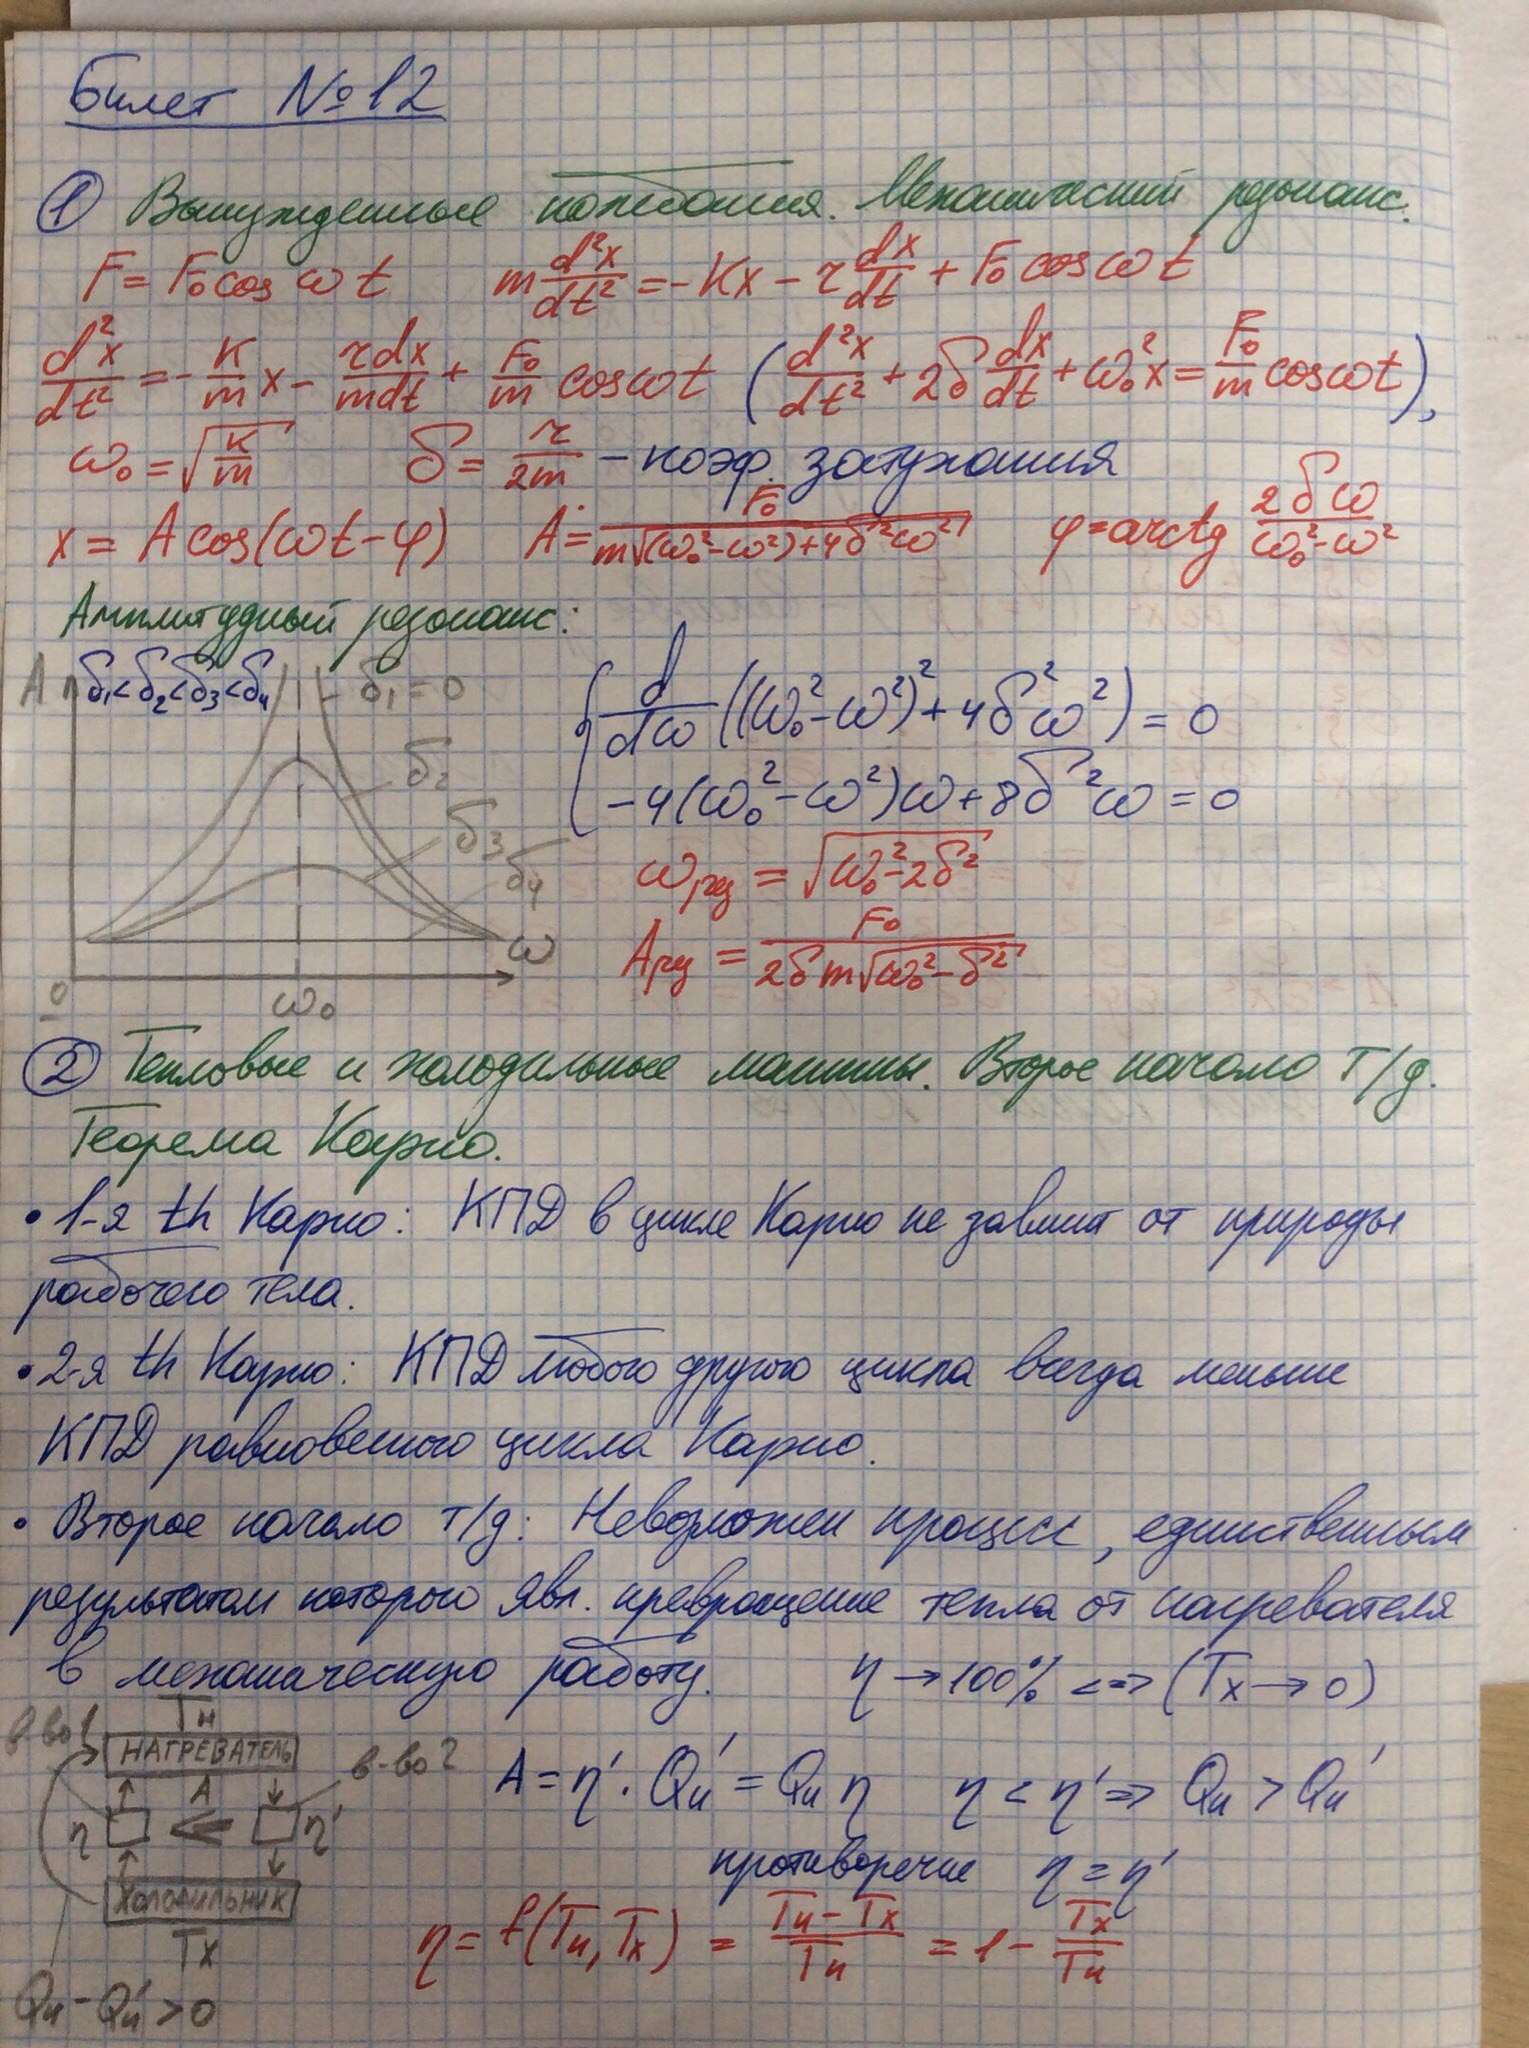 Билет №12
① Вынужденные колебания. Механический резонанс.
F = F₀ cos ωt    m d²x/dt² = -Kx - r dx/dt + F₀ cos ωt
d²x/dt² = - K/m x - rdx/mdt + F₀/m cos ωt (d²x/dt² + 2δ dx/dt + ω₀²x = F₀/m cos ωt),
ω₀ = √(K/m)    δ = r/2m - коэф. затухания
x = A cos(ωt - φ)    A = F₀/(m√((ω₀² - ω²) + 4δ²ω²))    φ = arctg 2δω/(ω₀² - ω²)
Амплитудный резонанс:
A δ₁ < δ₂ < δ₃ < δ₄    δ₁ = 0
δ₂
δ₃
δ₄
ω
0    ω₀
{ d/dω ((ω₀² - ω²)² + 4δ²ω²) = 0
-4(ω₀² - ω²)ω + 8δ²ω = 0
ωрез = √(ω₀² - 2δ²)
Aрез = F₀/(2δm√(ω₀² - δ²))
② Тепловые и холодильные машины. Второе начало т/д.
Теорема Карно.
• 1-я th Карно: КПД в цикле Карно не зависит от природы
рабочего тела.
• 2-я th Карно: КПД любого другого цикла всегда меньше
КПД равновесного цикла Карно.
• Второе начало т/д: Невозможен процесс, единственным
результатом которого явл. превращение тепла от нагревателя
в механическую работу.    η → 100% <=> (Tх → 0)
Tн
в-во 1    НАГРЕВАТЕЛЬ    в-во 2
A
η    η'
ХОЛОДИЛЬНИК
Tх
Qн - Qн' > 0
A = η' · Qн' = Qн η    η < η' => Qн > Qн'
противоречие    η = η'
η = f(Tн, Tх) = (Tн - Tх)/Tн = 1 - Tх/Tн